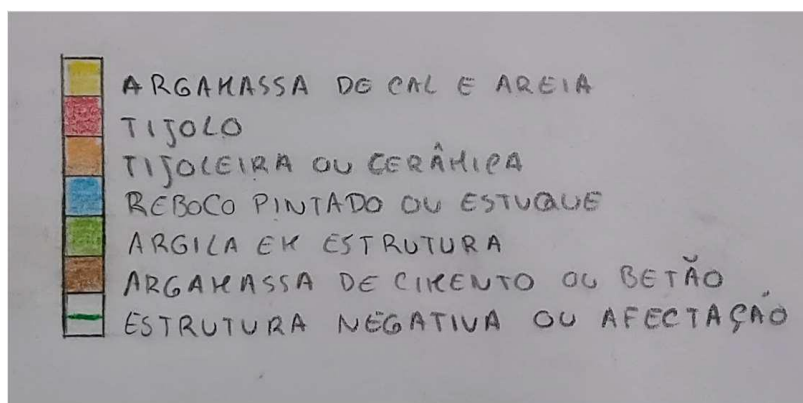 ARGAMASSA DE CAL E AREIA
TIJOLO
TIJOLEIRA OU CERÂMICA
REBOCO PINTADO OU ESTUQUE
ARGILA EM ESTRUTURA
ARGAMASSA DE CIMENTO OU BETÃO
ESTRUTURA NEGATIVA OU AFECTAÇÃO